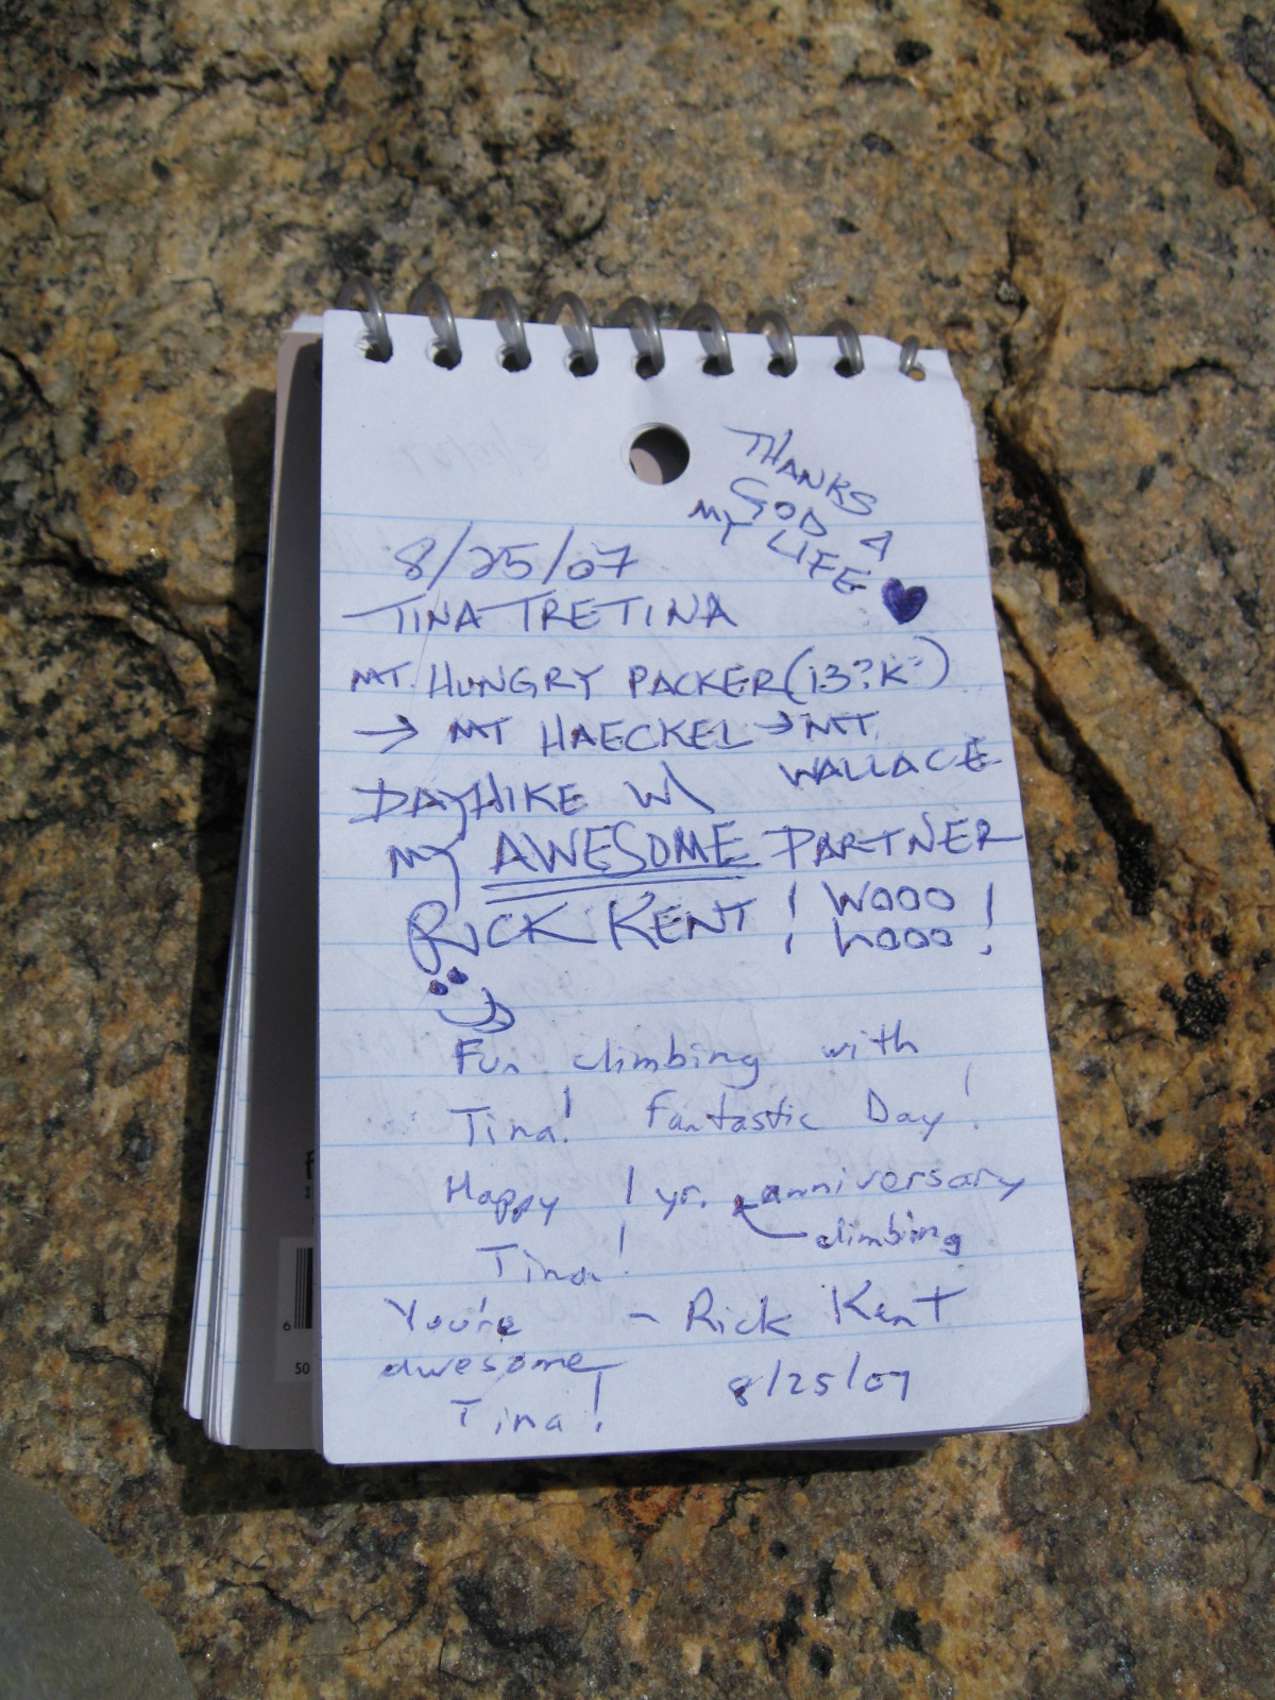 THANKS
GOD 4
MY LIFE
8/25/07
TINA TRETINA
MT. HUNGRY PACKER (13?K')
→ MT HAECKEL → MT.
WALLACE
DAYHIKE W\
MY AWESOME PARTNER
RICK KENT! WOOO
HOOO!
Fun climbing with
Tina! Fantastic Day!
Happy 1 yr. anniversary
climbing
Tina!
You're
awesome
Tina!
- Rick Kent
8/25/07
6
50